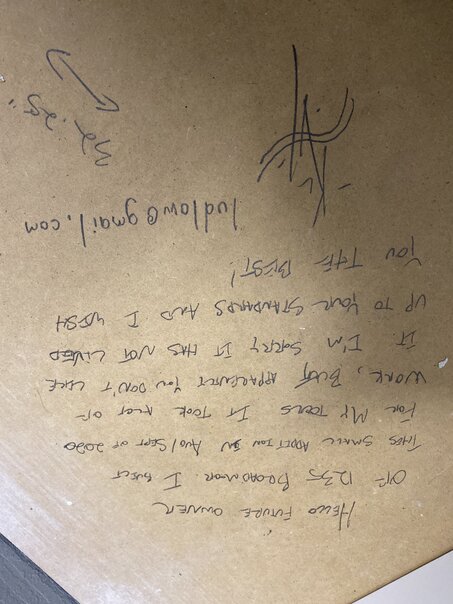 HELLO FUTURE OWNER
OF 1235 BROADMOOR. I BUILT
THIS SMALL ADDITION IN AUG/SEPT OF 2020
FOR MY TOOLS IT TOOK ALOT OF
WORK, BUT APPARENTLY YOU DON'T LIKE
IT. I'M SORRY IT HAS NOT LIVED
UP TO YOUR STANDARDS AND I WISH
YOU THE BEST!
ludlow@gmail.com